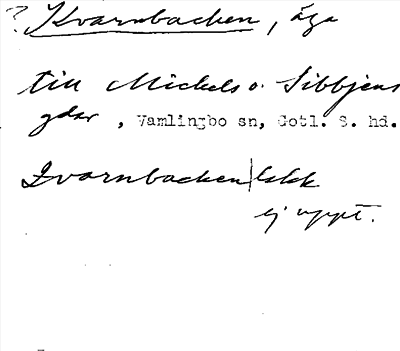 ? Kvarnbacken, äga
till Mickels o. Sibbjens
gdar, Vamlingbo sn, Gotl. S. hd.
Kvarnbacken
ej uppt.